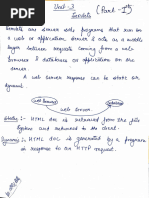 Unit-3
Servlets {Part-1st}
Servlets are server side programs that run on
a web or application server & acts as a middle
layer between requests coming from a web
browser & databases or application on the
server.
A web server response can be static or
dynamic
web server
Static :- HTML doc is retrieved from the file
system and returned to the client.
Dynamic :- HTML doc is generated by a program
in response to an HTTP request.